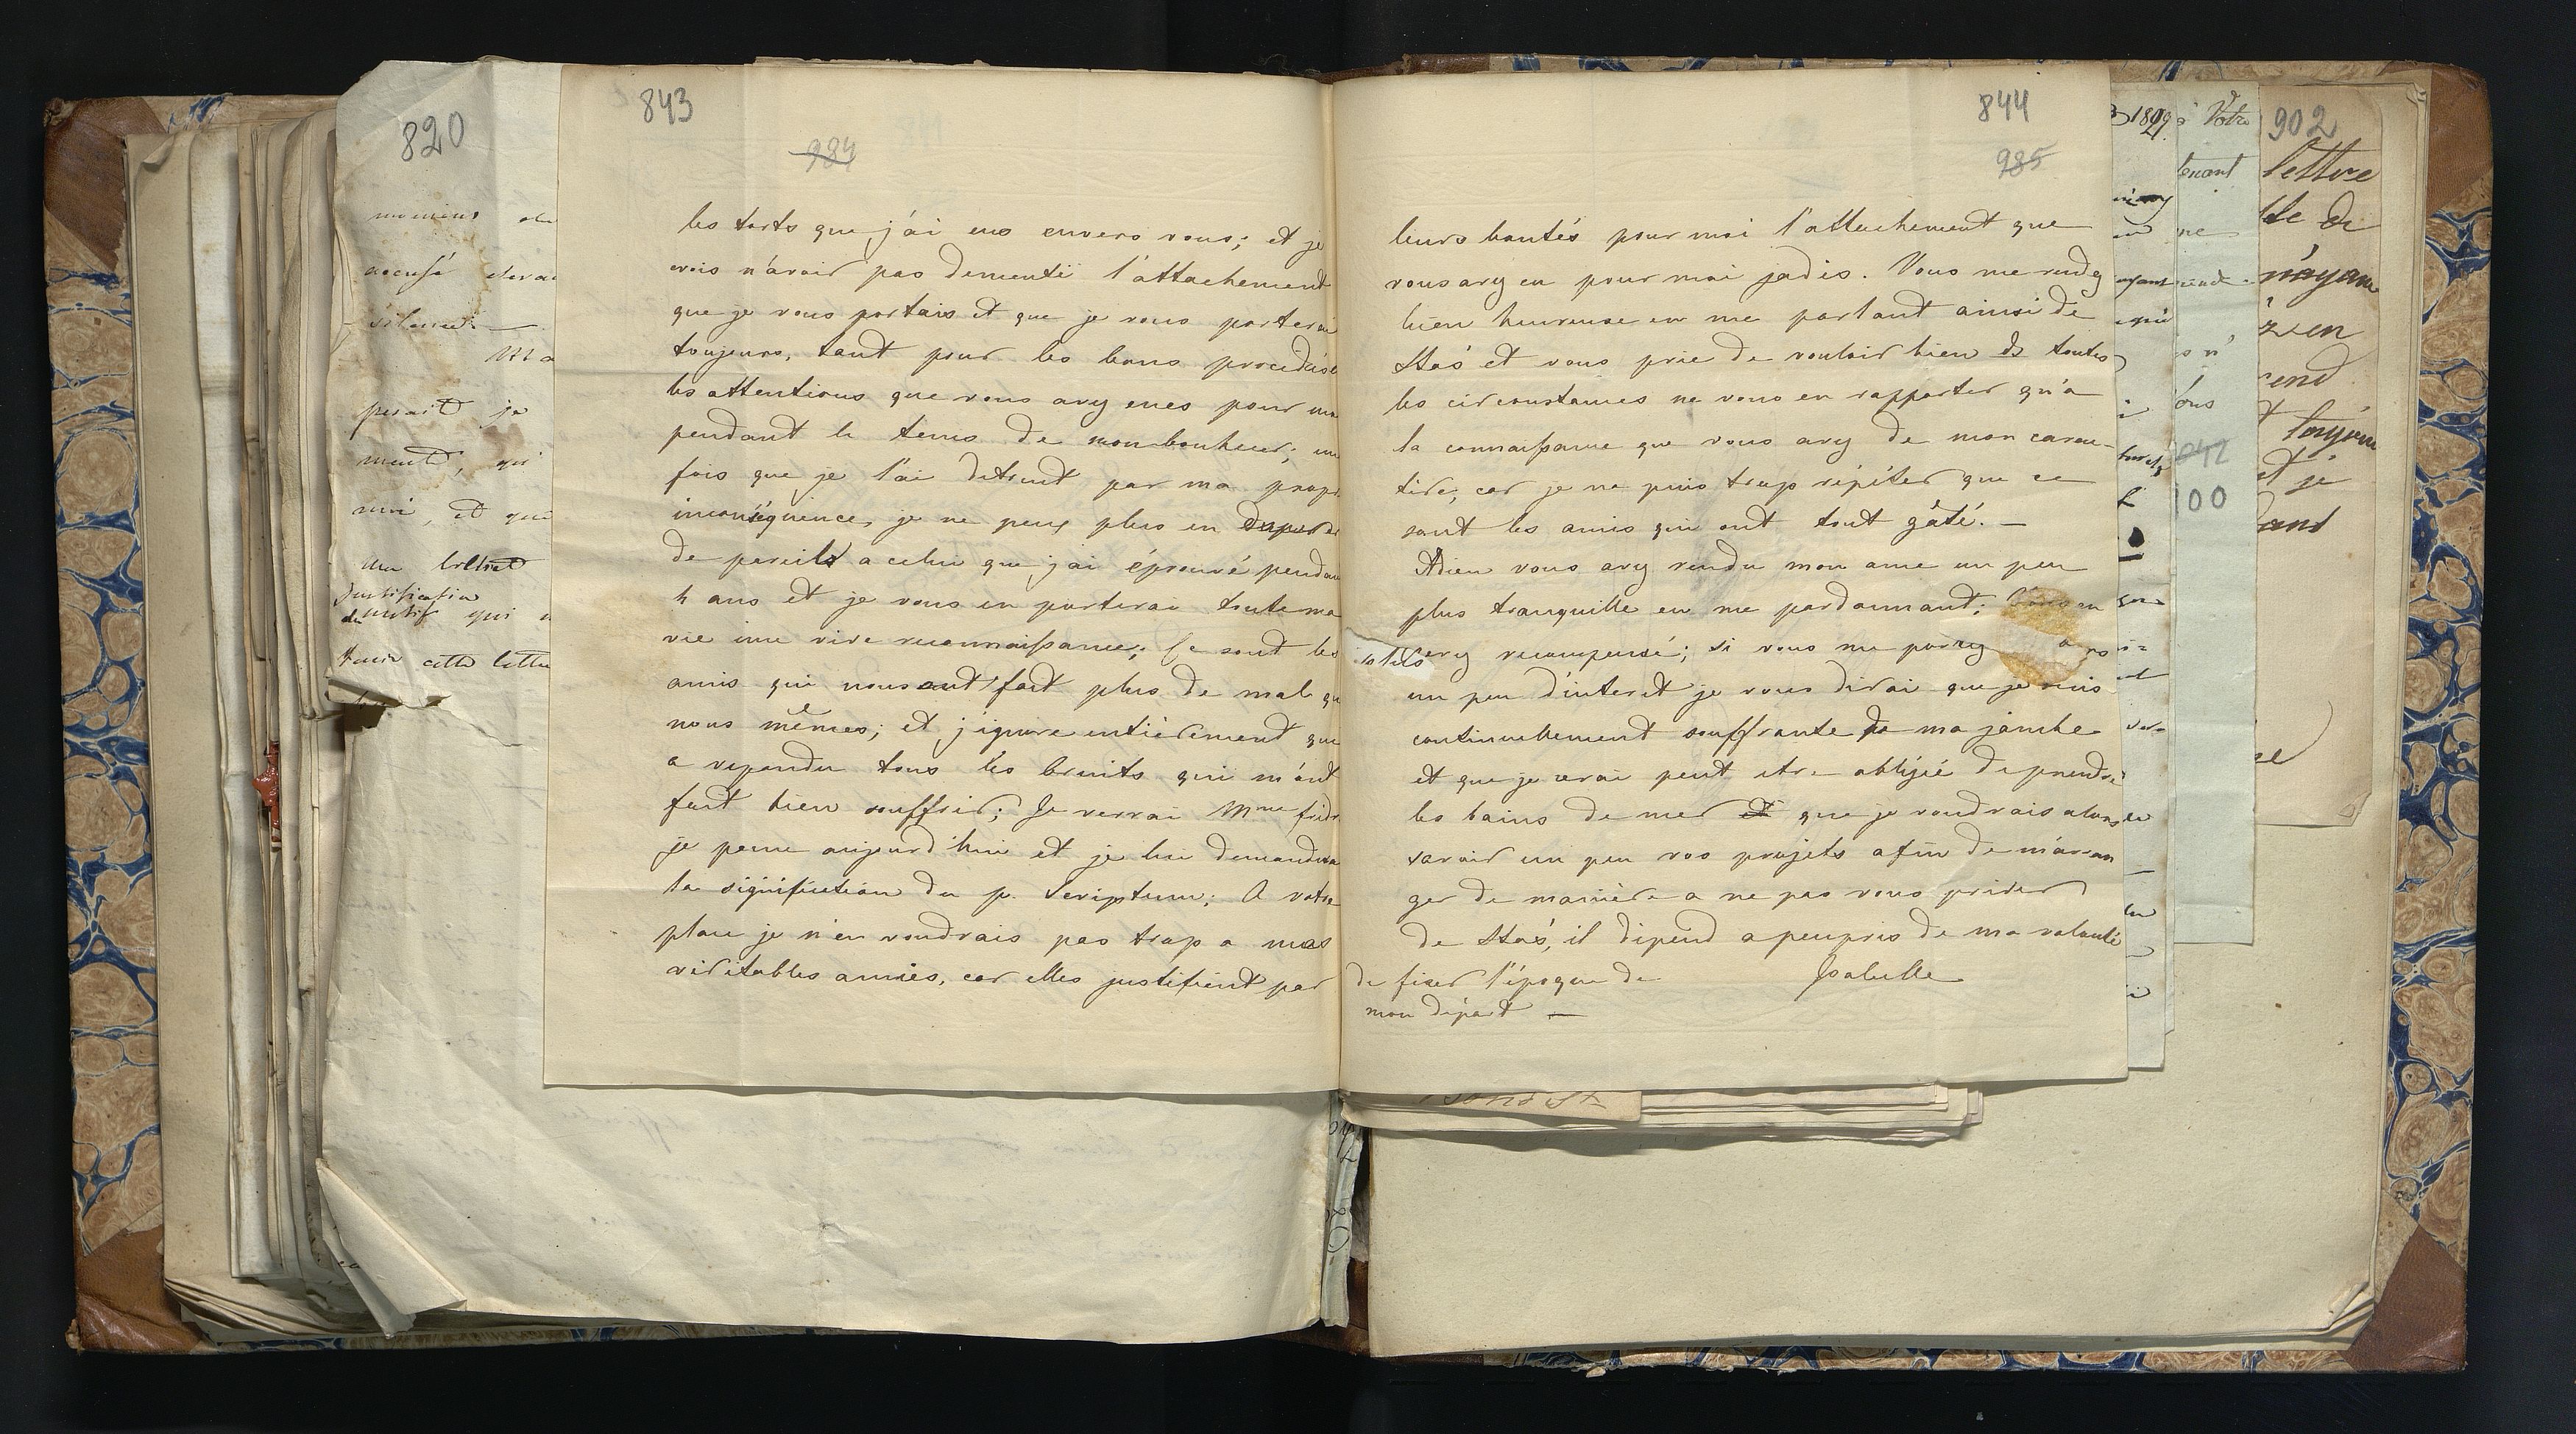 820
moniens
accusé
silence
perait je
ment, qui
moi, et que
justification
du motif qui
cette lettre
843
984
les torts que j'ai eus envers vous; et je
crois n'avoir pas dementii l'attachement
que je vous portais et que je vous porterai
toujours, tant pour les bons procedés
les attentions que vous avez eues pour
pendant le tems de mon bonheur; une
fois que je l'ai detruit par ma propr
inconséquence, je ne peux plus en
de pareils a celui que j'ai éprouvé pendan
4 ans et je vous en porterai toute ma
vie une vive reconnaissance; Ce sont les
amis qui nous ont fait plus de mal qu
nous mêmes; et j'ignore entièrement qui
a repandu tous les bruits qui m'ont
fait bien souffrir; Je verrai Mme fridr
je pense aujourd'hui et je lui demandera
la signification du p. Scriptum; A votre
place je n'en voudrais pas trop a mes
véritables amies, car elles justifient par
844
985
leurs bontés pour moi l'attachement que
vous avez eu pour moi jadis. Vous me rendez
bien heureuse en me parlant ainsi de
Stas et vous prie de vouloir bien ds toutes
les circonstances ne vous en rapporter qu'a
la connaissance que vous avez de mon carac-
tère, car je ne puis trop répéter que ce
sont les amis qui ont tout gâté. —
Adieu vous avez rendu mon ame un peu
plus tranquille en me pardonnant; Vous en
serez recompensé; si vous me portez
un peu d'interet je vous dirai que je suis
continuellement souffrante de ma jambe
et que je serai peut etre obligée de prendre
les bains de mer et que je voudrais alors
savoir un peu vos projets afin de m'arran
ger de manière a ne pas vous priver
de Stas, il dépend a peu près de ma volonté
de fixer l'époque de Isabelle
mon départ —
1829
à Votre
tenant
ne
100
902
lettre
n'ayant
toujours
et je